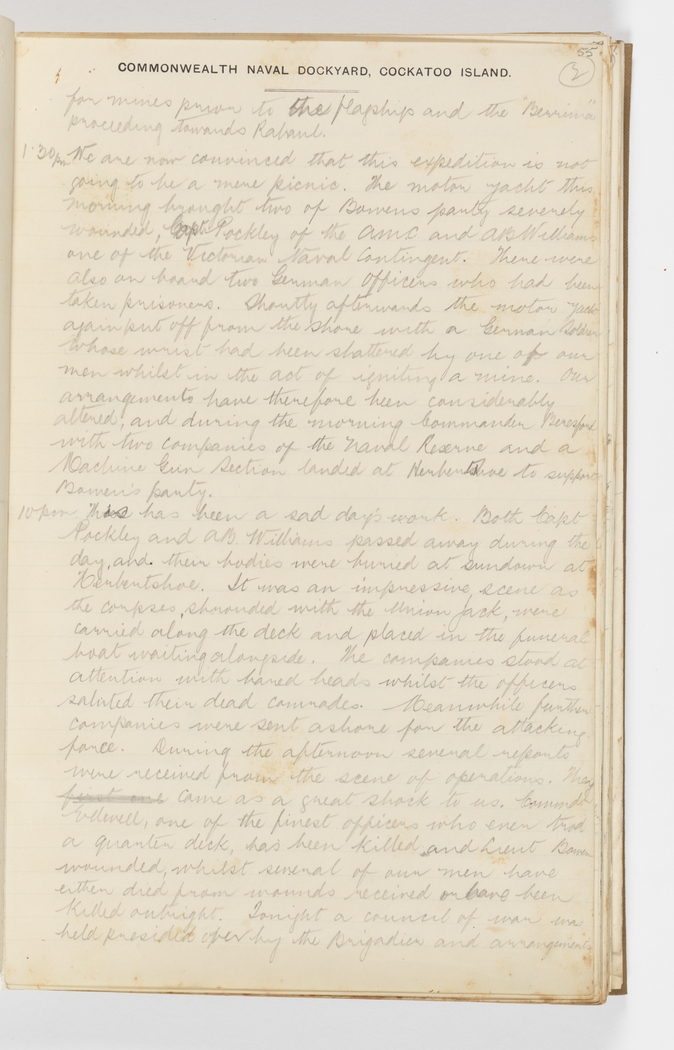 55
3
COMMONWEALTH NAVAL DOCKYARD, COCKATOO ISLAND.
for mines prior to the flagship and the "Berrima"
proceeding towards Rabaul.
1.30 pm We are now convinced that this expedition is not
going to be a mere picnic. The motor yacht this
morning brought two of Bowens party severely
wounded, Capt Pockley of the A.M.C. and AB Williams
one of the Victorian Naval Contingent. There were
also on board two German Officers who had been
taken prisoners. Shortly afterwards the motor yacht
again put off from the shore with a German Soldier
whose wrist had been shattered by one of our
men whilst in the act of igniting a mine. Our
arrangements have therefore been considerably
altered, and during the morning Commander Beresford
with two companies of the Naval Reserve and a
Machine Gun Section landed at Herbertshoe to support
Bowen's party.
10 pm. This has been a sad day's work. Both Capt
Pockley and AB Williams passed away during the
day, and their bodies were buried at sundown at
Herbertshoe. It was an impressive scene as
the corpses, shrouded with the Union Jack, were
carried along the deck and placed in the funeral
boat waiting alongside. The companies stood at
attention with bared heads whilst the officers
saluted their dead comrades. Meanwhile further
companies were sent ashore for the attacking
force. During the afternoon several reports
were received from the scene of operations. They
first one came as a great shock to us. Commdr
Elwell, one of the finest officers who ever trod
a quarter deck, has been killed, and Lieut Bowen
wounded, whilst several of our men have
either died from wounds received or have been
killed outright. Tonight a council of war was
held presided over by the Brigadier and arrangements